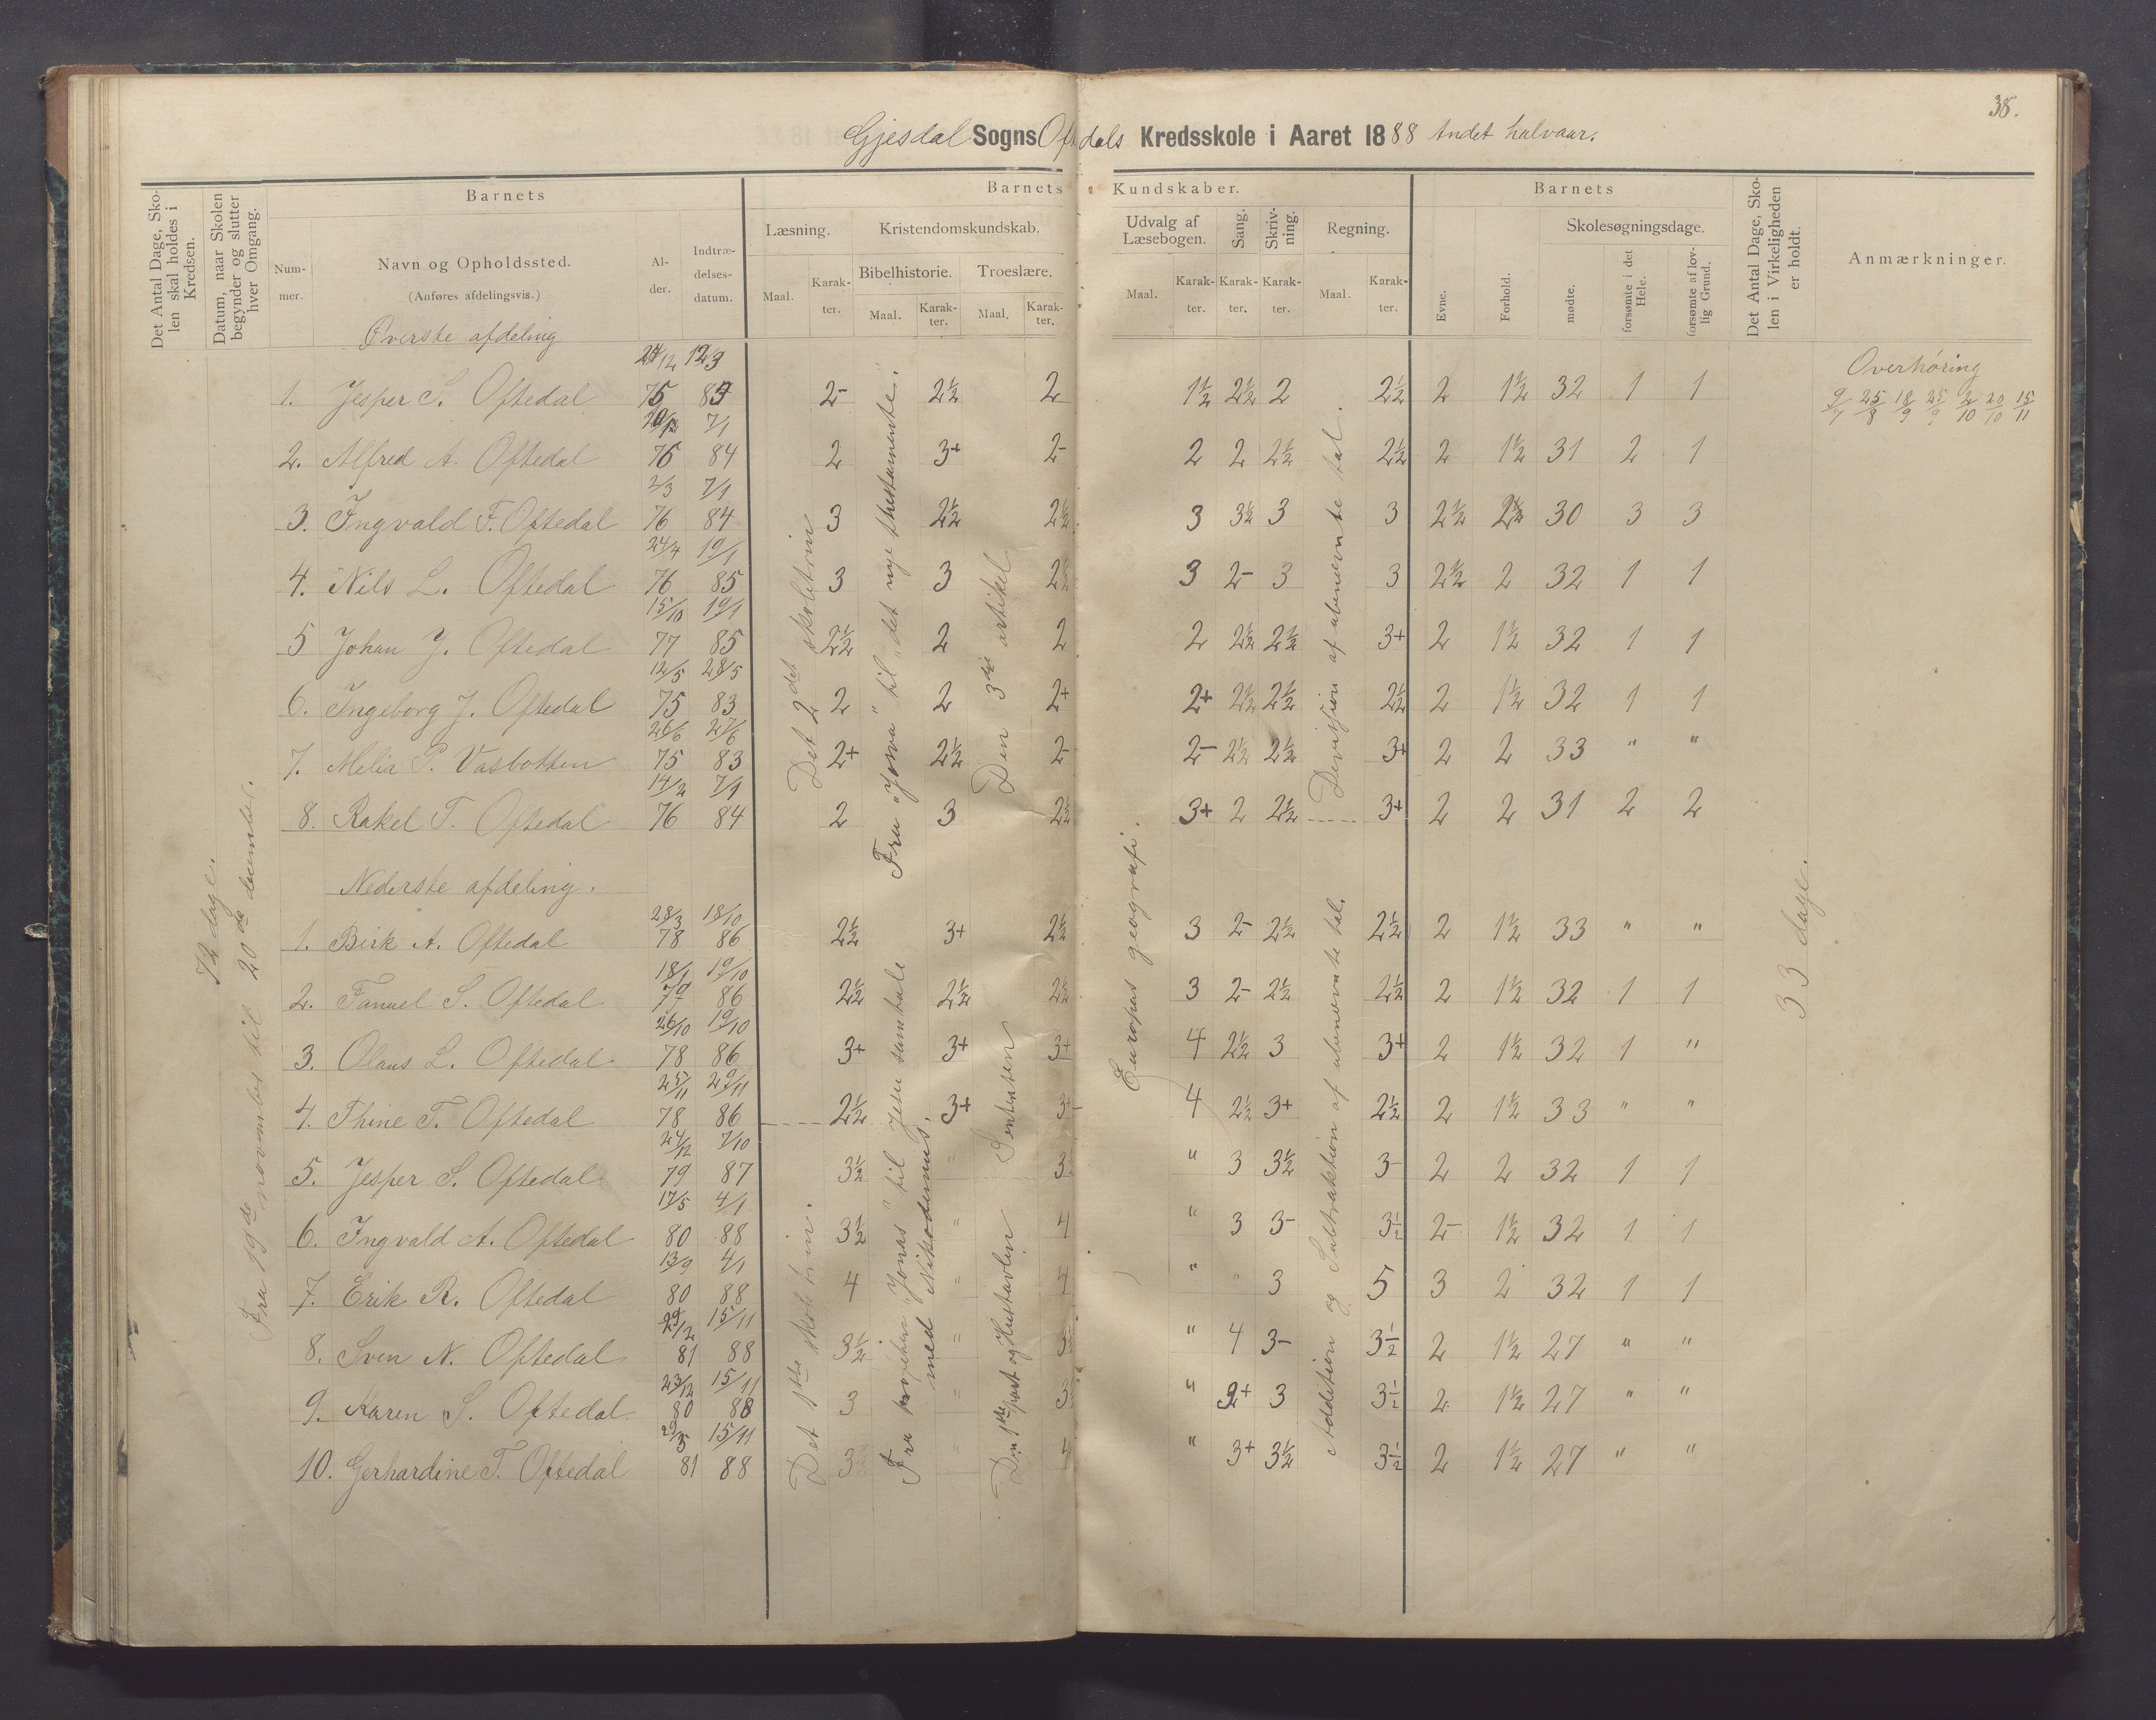 38.
Gjesdal Sogns Oftedals Kredsskole i Aaret 1888 Andet halvaar.
Det Antal Dage, Skolen skal holdes i Kredsen.
Datum, naar Skolen begynder og slutter hver Omgang.
Barnets
Nummer.
Navn og Opholdssted.
(Anføres afdelingsvis.)
Alder.
Indtrædelsesdatum.
Barnets Kundskaber.
Læsning.
Maal. Karakter.
Kristendomskundskab.
Bibelhistorie. Troeslære.
Maal. Karakter. Maal. Karakter.
Udvalg af Læsebogen.
Maal. Karakter.
Sang. Karakter.
Skrivning. Karakter.
Regning.
Maal. Karakter.
Barnets
Evne. Forhold.
Skolesøgningsdage.
mødte. forsømte i det Hele. forsømte af lovlig Grund.
Det Antal Dage, Skolen i Virkeligheden er holdt.
Anmærkninger.
Øverste afdeling
Overhøring
9/7 25/8 18/9 25/9 2/10 20/10 15/11
1. Jesper S. Oftedal 75 83 2- 2½ 2 1½ 2½ 2 2½ 2 1½ 32 1 1
2. Alfred A. Oftedal 76 7/1 84 2 3+ 2- 2 2 2½ 2½ 2 1½ 31 2 1
3. Ingvald F. Oftedal 2/3 76 7/1 84 3 2½ 2½ 3 3½ 3 3 2½ 30 3 3
4. Nils L. Oftedal 24/4 76 19/1 85 3 3 2½ 3 2- 3 3 2½ 2 32 1 1
5 Johan J. Oftedal 15/10 77 19/1 85 2½ 2 2 2 2½ 2½ 3+ 2 1½ 32 1 1
6. Ingeborg J. Oftedal 12/5 75 28/5 83 2 2 2+ 2+ 2½ 2½ 2½ 2 1½ 32 1 1
7. Melia P. Vasbotten 26/6 75 27/6 83 2+ 2½ 2- 2- 2½ 2½ 3+ 2 2 33 " "
8. Rakel T. Oftedal 14/2 76 7/1 84 2 3 2½ 3+ 2 2½ 3+ 2 2 31 2 2
Nederste afdeling.
1. Birk A. Oftedal 28/3 78 18/10 86 2½ 3+ 2½ 3 2- 2½ 2½ 2 1½ 33 " "
2. Fanuel S. Oftedal 18/1 79 19/10 86 2½ 2½ 2½ 3 2- 2½ 2½ 2 1½ 32 1 1
3. Olaus L. Oftedal 26/10 78 19/10 86 3+ 3+ 3+ 4 2½ 3 3+ 2 1½ 32 1 "
4. Thine T. Oftedal 25/11 78 29/11 86 2½ 3+ 3+ 4 2½ 3+ 2½ 2 1½ 33 " "
5. Jesper S. Oftedal 24/12 79 7/10 87 3½ " 3½ " 3 3½ 3- 2 2 32 1 1
6. Ingvald A. Oftedal 17/5 80 4/1 88 3½ " 4 " 3 3- 3½ 2- 1½ 32 1 1
7. Erik R. Oftedal 13/9 80 4/1 88 4 " 4 " " 3 5 3 2 32 1 1
8. Sven N. Oftedal 81 15/11 88 3½ " " 4 3- 3½ 2 1½ 27 " "
9. Karen S. Oftedal 23/12 80 15/11 88 3 " 3 " 3 3½ 2 1½ 27 " "
10. Gerhardine T. Oftedal 29/5 81 15/11 88 3½ " 4 " 3+ 3½ 3½ 2 1½ 27 " "
72 dage.
Fra 19de november til 20de december.
Det 2det skoletrin
Det 1ste skoletrin.
Fra "Josva" til "det nye thestamente".
Fra profeten "Jonas" til Jesu samtale
med Nikodemus.
Den 3die artikel
Sentensen
Den 1ste part og Hustavlen
Europas geografi.
Devisjon af ubenævnte tal.
Addition og Subtraktion af ubenævnte tal.
33 dage.